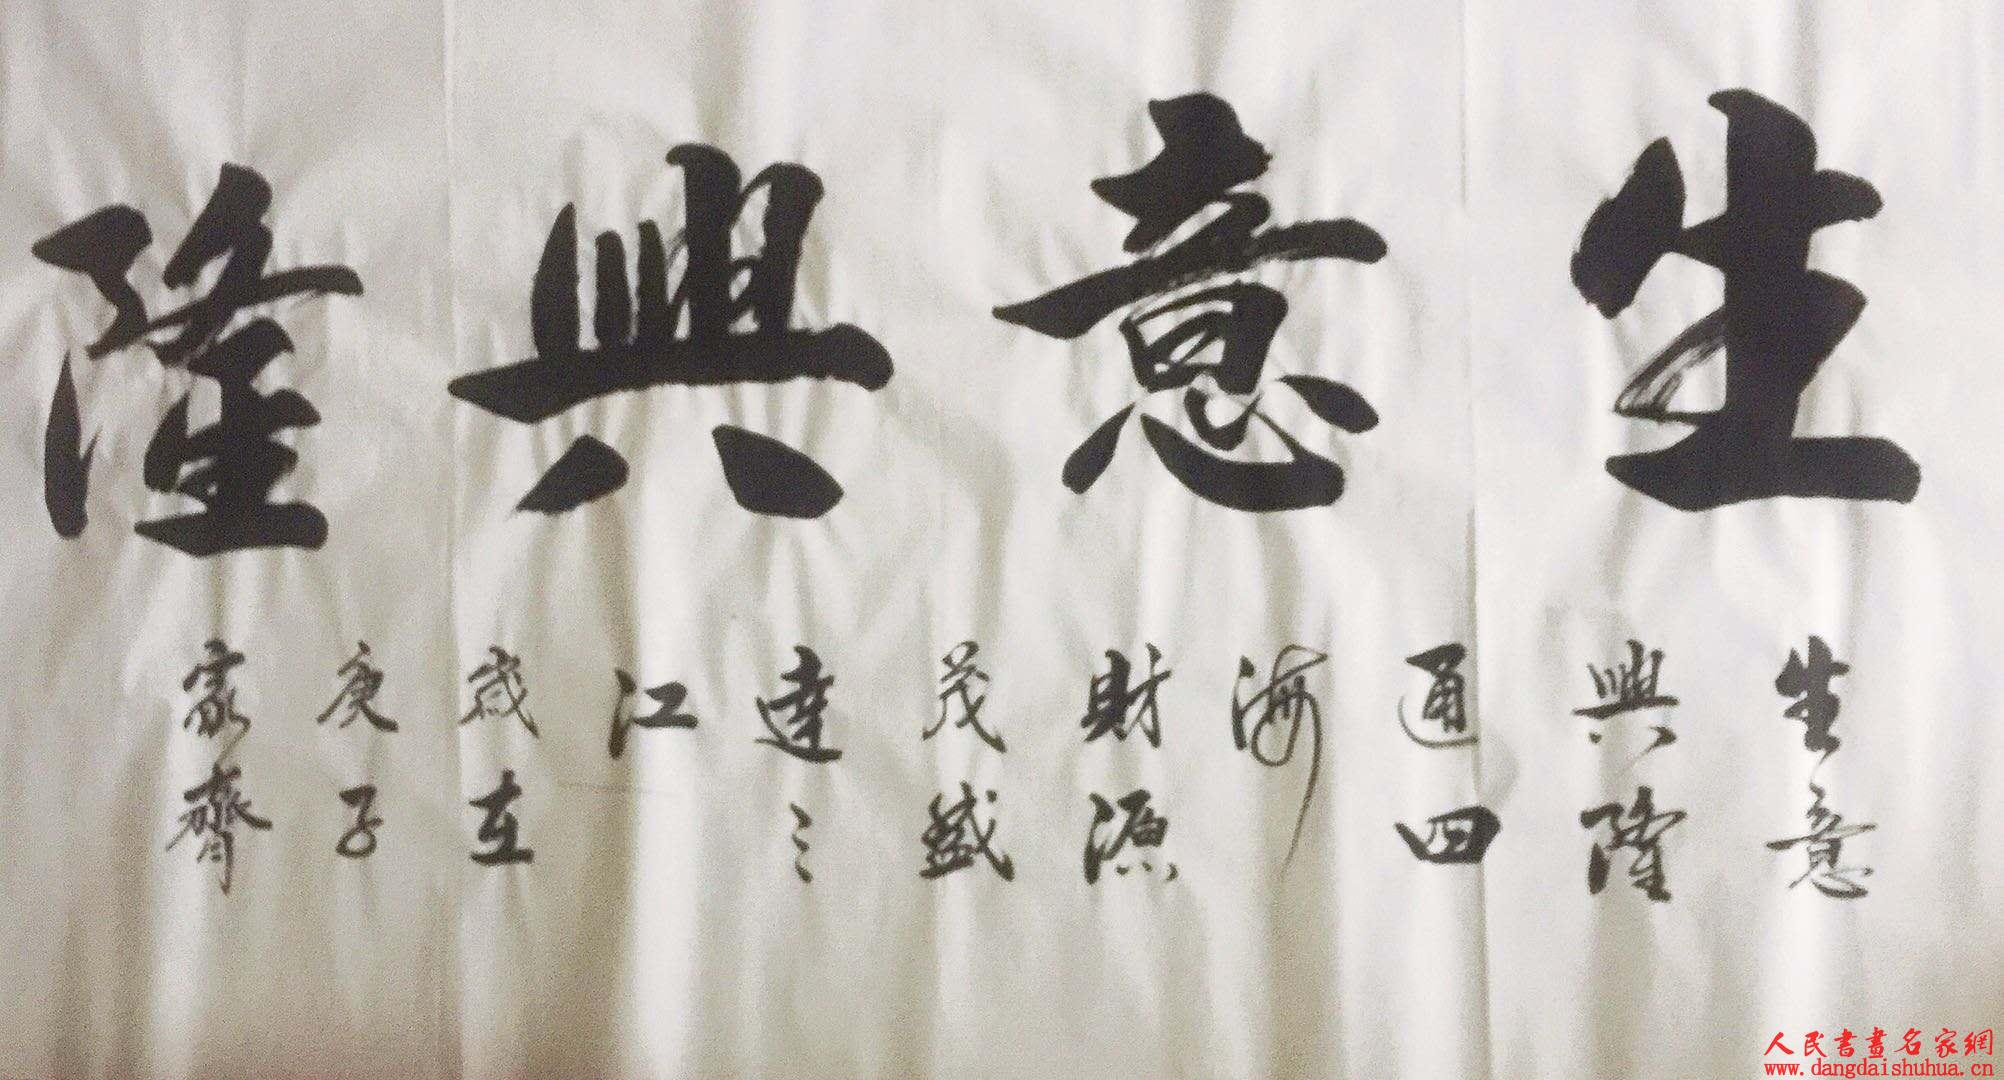 生意興隆
生意
興隆
通四
海
財源
茂盛
達三
江
歲在
庚子
家齊
人民書畫名家網
www.dangdaishuhua.cn